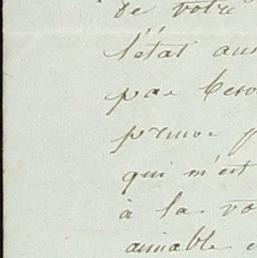 de votre
l'état au
pas beso
preuve p
qui m'est
à la vo
aimable e